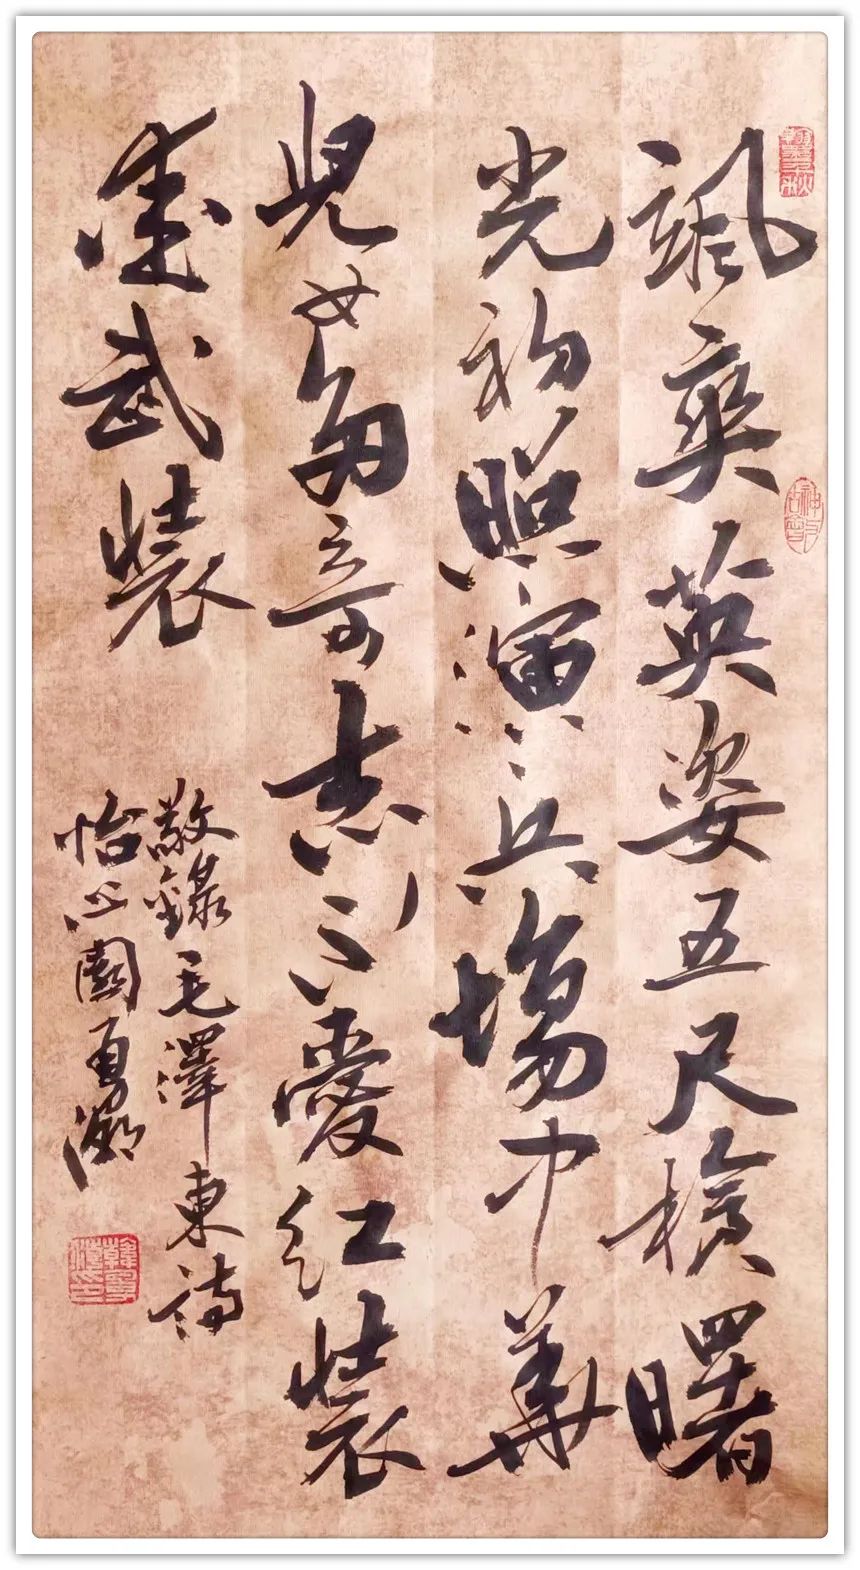 颯爽英姿五尺槍曙
光初照演兵場中華
兒女多奇志不愛紅裝
愛武裝
敬錄毛澤東詩
怡心園勇